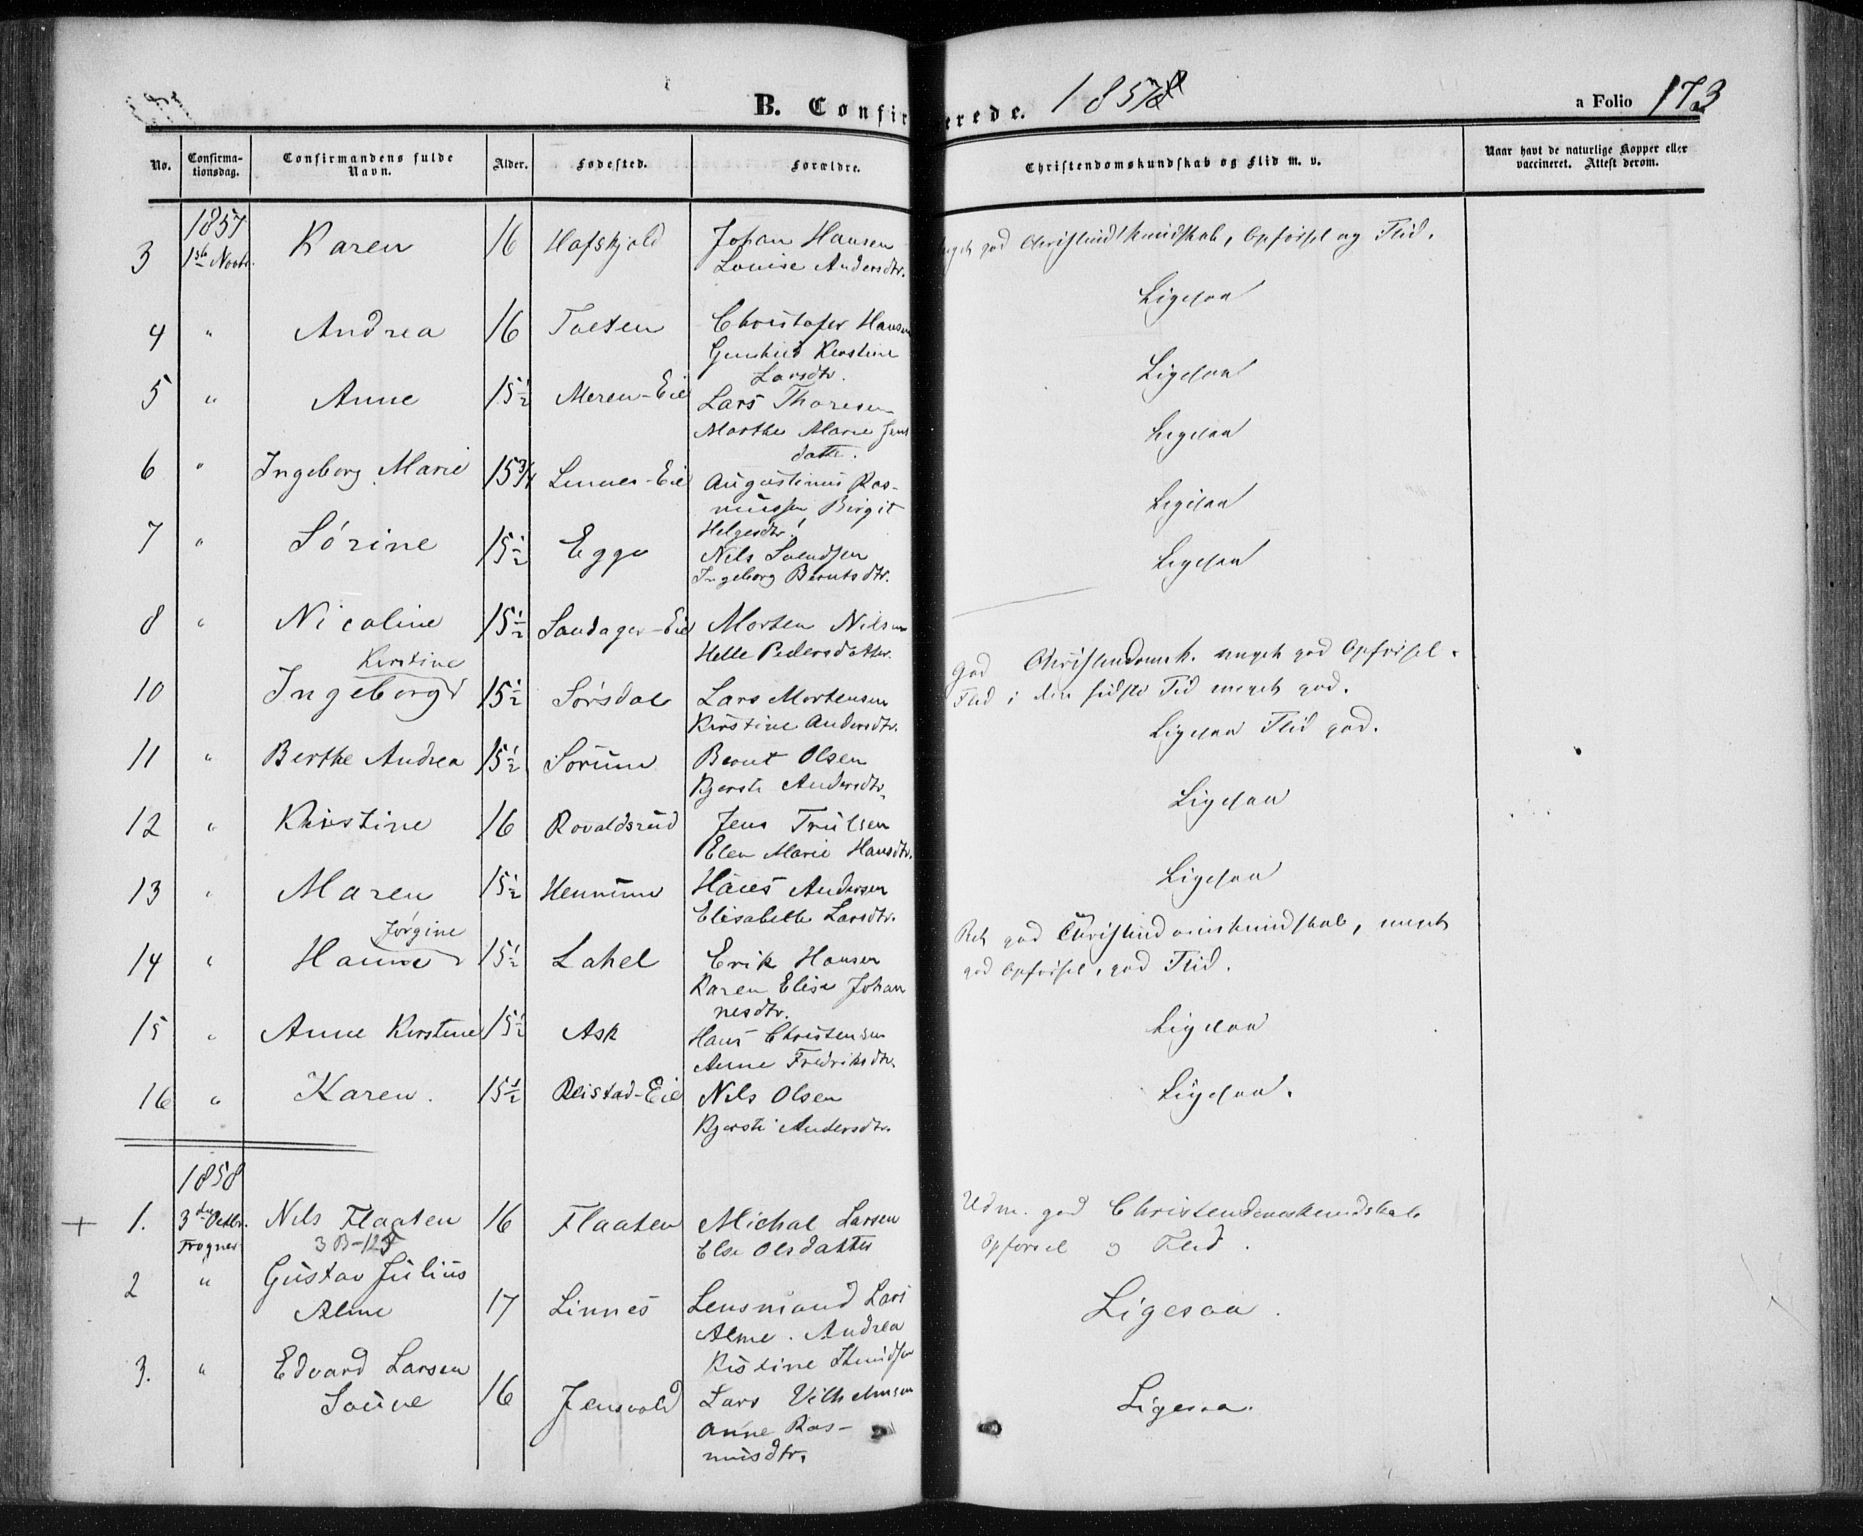 B. Confirmerede. 1857
a Folio 173
No.
Confirma-
tionsdag.
Confirmandens fulde
Navn.
Alder.
Fødested.
Forældre.
Christendomskundskab og Flid m. v.
Naar havt de naturlige Kopper eller
vaccineret. Attest derom.
1857
3 1ste Novbr. Karen 16 Hafskjold Johan Hansen
Louise Andersdtr.
meget god Christendskundskab, Opførsel og Flid.
4 " Andrea 16 Toeten Christofer Hansen
Kirstine
Larsdtr.
Ligesaa
5 " Anne 15½ Meren-Eie Lars Thoresen
Marthe Marie Jens
datter.
Ligesaa
6 " Ingeborg Marie 15¾ Linnes-Eie Augustinus Ras-
mussen Birgit
Helgesdtr.
Ligesaa
7 " Sørine 15½ Egge Nils Svendsen
Ingeborg Berntsdtr.
Ligesaa
8 " Nicoline 15½ Sandager-Eie Morten Nilsen
Helle Pedersdatter.
Ligesaa
10 Ingeborg Kirstine 15½ Sørsdal Lars Mortensen
Kirstine Andersdtr.
God Christendomsk. meget god Opførsel.
Flid i den sidste Tid meget god.
11 " Berthe Andrea 15½ Sørum Bernt Olsen
Kjersti Andersdtr.
Ligesaa Flid god.
12 " Kristine 16 Rovaldsrud Jens Trulsen
Elen Marie Hansdtr.
Ligesaa
13 " Maren 15½ Hennum Hans Andersen
Elisabeth Larsdtr.
Ligesaa
14 " Hanne Jørgine 15½ Lahel Erik Hansen
Karen Elise Johan
nesdtr.
Ret god Christendomskundskab, meget
god Opførsel, god Flid.
15 " Anne Kirstine 15½ Ask Hans Christensen
Anne Fredriksdtr.
Ligesaa
16 " Karen. 15½ Reistad-Eie Nils Olsen
Kjersti Andersdtr.
Ligesaa.
1858
+ 1. 3die Octbr. Nils Flaaten 16 Flaaten Michal Larsen
Frogner 3 B-125 Else Olsdatter
Udm. god Christendomskundskab
Opførsel og Flid.
2 " Gustav Julius
Alme 17 Linnes Lensmand Lars
Alme. Andrea
Kistine
Ligesaa.
3. " Edvard Larsen
16 Jensvold Lars Vilhelmsen
Anne Ras-
musdtr.
Ligesaa.